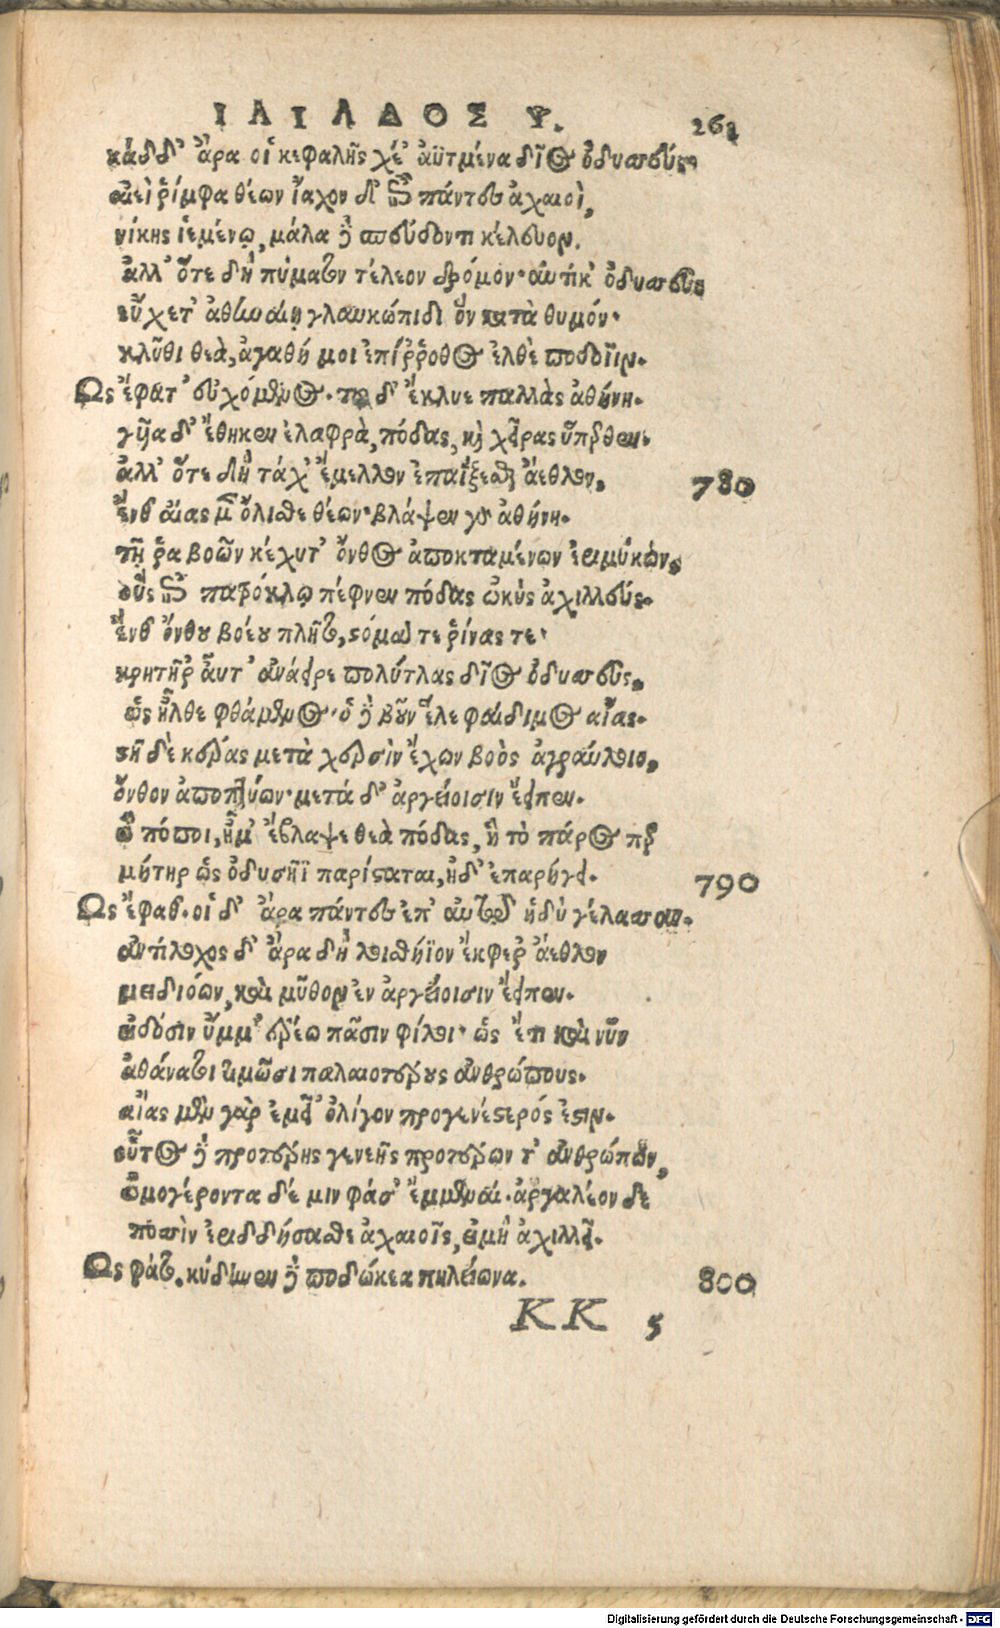 ΙΛΙΑΔΟΣ Ψ. 261
κάδδ' ἄρα οἱ κεφαλῆς χέ' ἀϋτμένα δῖος ὀδυσσεύς,
αἰεὶ ῥίμφα θέων ἴαχον δ' ἐπὶ πάντες ἀχαιοὶ,
νίκης ἱεμένῳ, μάλα δὲ σπεύδοντι κέλευον.
ἀλλ' ὅτε δὴ πύματον τέλεον δρόμον· αὐτίκ' ὀδυσσεὺς
εὔχετ' ἀθηναίῃ γλαυκώπιδι ὃν κατὰ θυμόν·
κλῦθι θεὰ, ἀγαθή μοι ἐπίῤῥοθος ἐλθὲ ποδοῖιν.
Ὣς ἔφατ' εὐχόμενος. τοῦ δ' ἔκλυε παλλὰς ἀθήνη.
γυῖα δ' ἔθηκεν ἐλαφρὰ, πόδας, καὶ χεῖρας ὕπερθεν.
ἀλλ' ὅτε δὴ τάχ' ἔμελλον ἐπαΐξεσθαι ἄεθλον, 780
ἔνθ' αἴας μὲν ὄλισθε θέων· βλάψεν γὰρ ἀθήνη.
τῇ ῥα βοῶν κέχυτ' ὄνθος ἀποκταμένων ἐριμύκων,
οὓς ἐπὶ πατρόκλῳ πέφνεν πόδας ὠκὺς ἀχιλλεύς.
ἔνθ' ὄνθου βοέου πλῆτο, στόμα τε ῥίνας τε·
κρητῆρ' αὖτ' ἀνάειρε πολύτλας δῖος ὀδυσσεὺς,
ὡς ἦλθε φθάμενος· ὁ δὲ βοῦν ἕλε φαίδιμος αἴας.
στῆ δὲ κέρας μετὰ χερσὶν ἔχων βοὸς ἀγραύλοιο,
ὄνθον ἀποπτύων· μετά δ' ἀργείοισιν ἔειπεν.
ὢ πόποι, ἦ μ' ἔβλαψε θεὰ πόδας, ἣ τὸ πάρος περ
μήτηρ ὣς ὀδυσῆϊ παρίσταται, ἠδ' ἐπαρήγει. 790
Ὣς ἔφαθ'. οἱ δ' ἄρα πάντες ἐπ' αὐτῷ ἡδὺ γέλασσαν.
ἀντίλοχος δ' ἄρα δὴ λοισθήϊον ἔκφερ' ἄεθλον
μειδιόων, καὶ μῦθον ἐν ἀργείοισιν ἔειπεν.
εἰδόσιν ὔμμ' ἐρέω πᾶσιν φίλοι· ὡς ἔτι καὶ νῦν
ἀθάνατοι τιμῶσι παλαιοτέρους ἀνθρώπους.
αἴας μὲν γὰρ ἐμεῖ' ὀλίγον προγενέστερός ἐστιν.
οὗτος δὲ προτέρης γενεῆς προτέρων τ' ἀνθρώπων,
ὠμογέροντα δέ μιν φάσ' ἔμμεναι. ἀργαλέον δὲ
ποσσὶν ἐριδδήσασθαι ἀχαιοῖς, εἰ μὴ ἀχιλλεῖ.
Ὣς φάτο. κύδηνεν δὲ ποδώκεα πηλείωνα. 800
KK 5
Digitalisierung gefördert durch die Deutsche Forschungsgemeinschaft - DFG